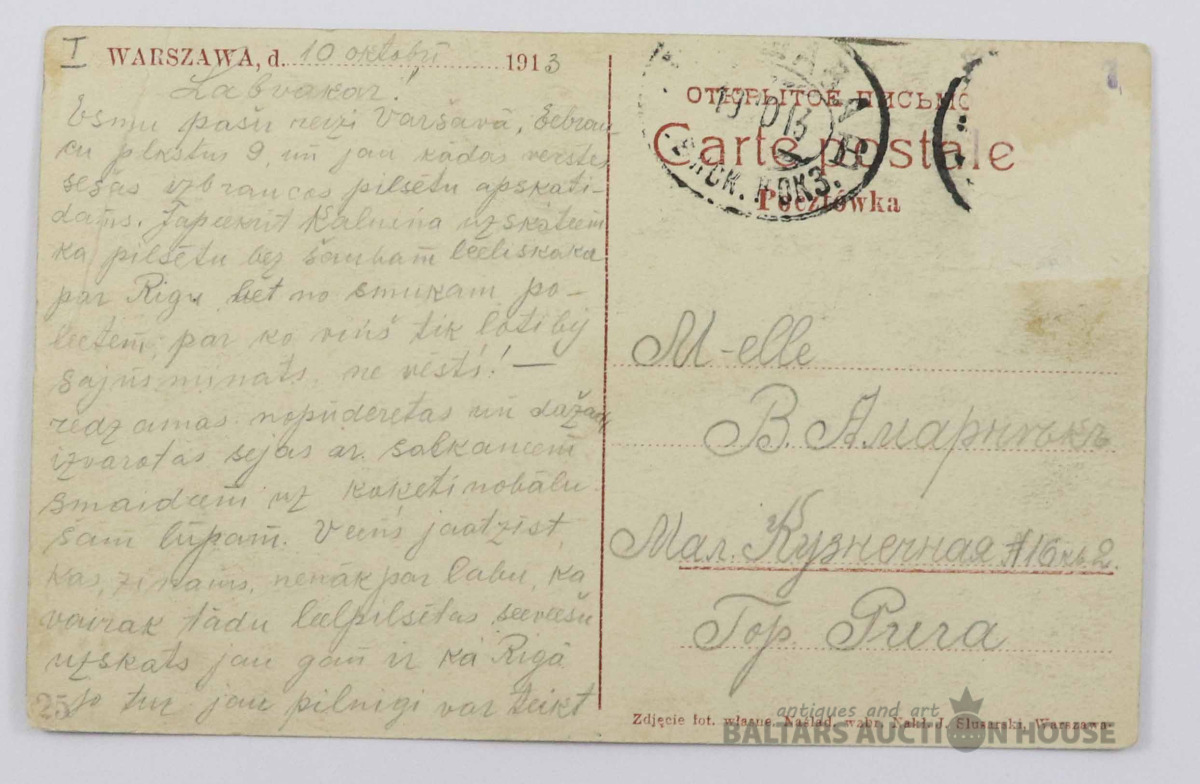 I
WARSZAWA, d. 10 oktobrī 1913
Labvakar!
Esmu pašu reizi Varšavā, Eebrau-
cu plkstus 9, un jau kādas verstes
sešas izbraucos pilsētu apskati-
dams. Japeekrīt Kalniņa uzskateem
ka pilsētu bez šaubam leeliskaka
par Rigu, bet no smukam po-
leetem, par ko viņš tik loti bij
sajūsminats, ne vēsts! —
redzamas nopūderetas un dažam
izvarotas sejas ar salkaneem
smaideem uz koķeti nobālu-
šam lūpam. Veens jaatzīst,
kas, zinams, nenāk par labu, ka
vairak tādu leelpilsētas seeveešu
uzskats jau gan ir kā Rigā
so tur jau pilnigi var teikt
25
ОТКРЫТОЕ ПИСЬМО
Carte postale
Pocztówka
19 10 13
В
ВОКЗ.
M-elle
В. Апарникъ
Мал. Кузнечная #16 кв. 2.
Гор. Рига
Zdjęcie fot. własne. Naślad. wzbr. Nakł. J. Slusarski, Warszawa.
antiques and art
BALTARS AUCTION HOUSE